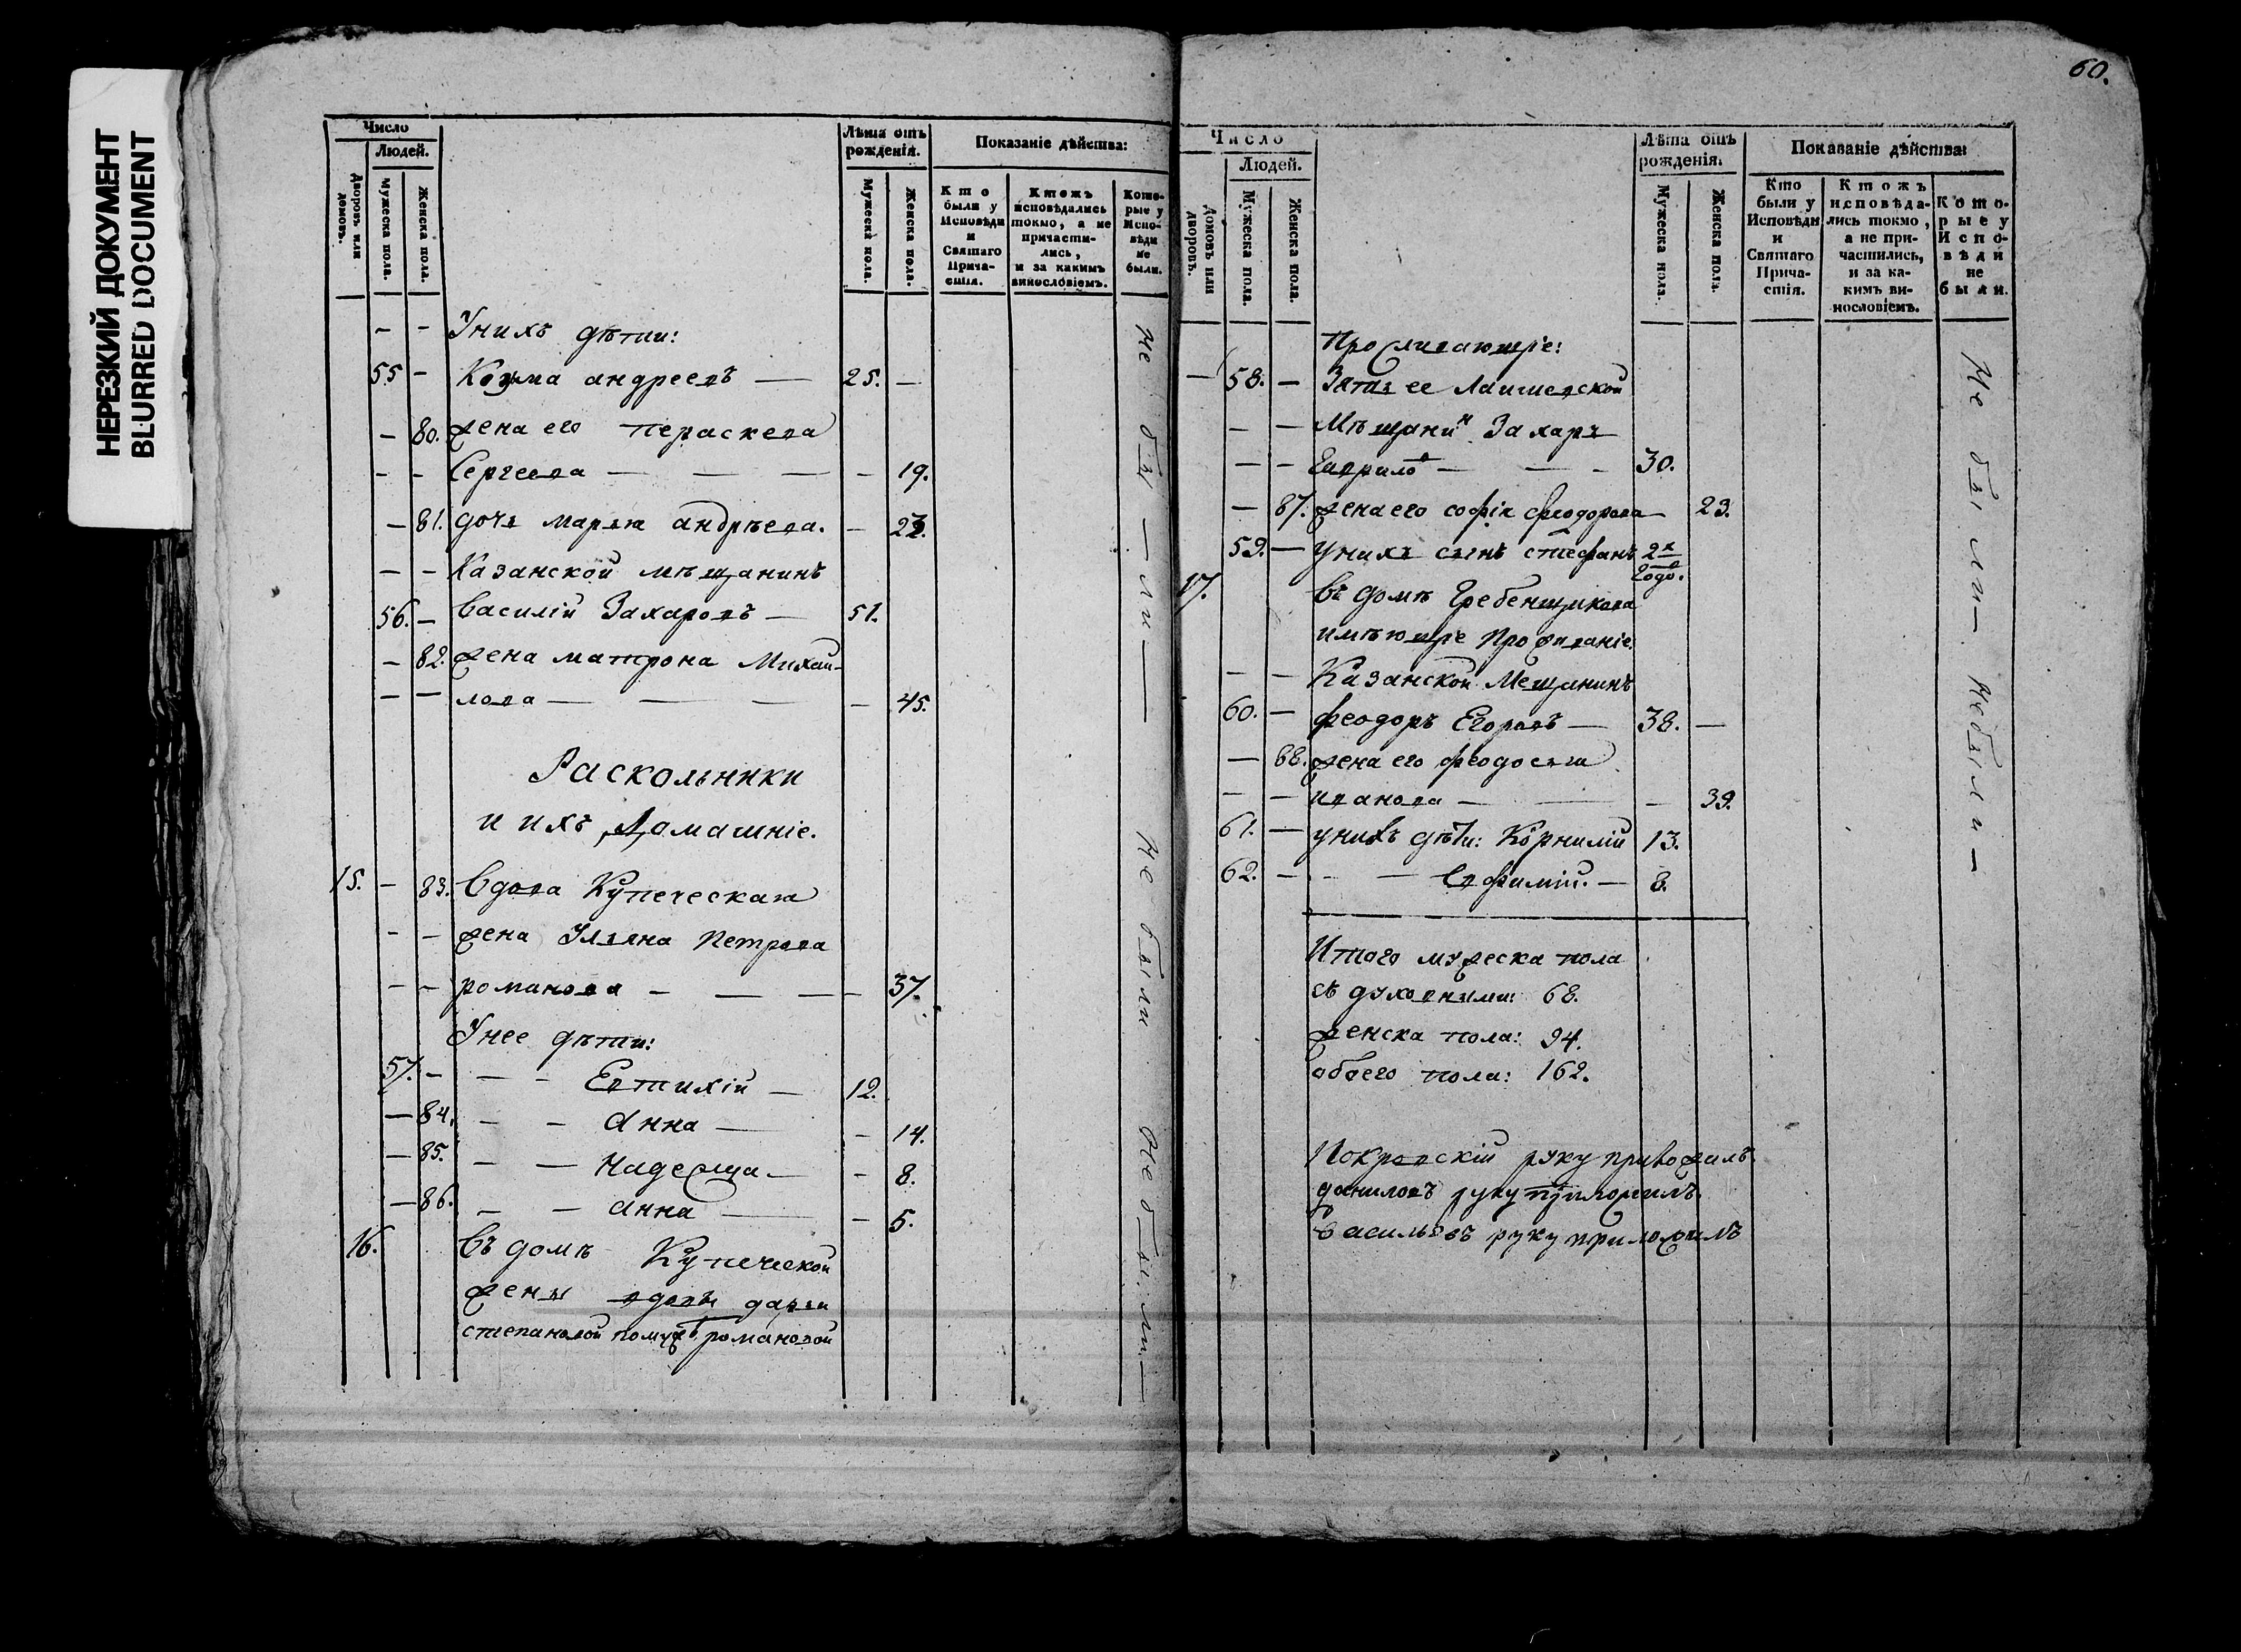 НЕРЕЗКИЙ ДОКУМЕНТ
BLURRED DOCUMENT
Число
Людей.
Дворовъ или домовъ.
Мужеска пола.
Женска пола.
Лѣта отъ рожденія.
Мужеска пола.
Женска пола.
Показаніе дѣйства:
Кто были у Исповѣди и Святаго Причастія.
Ктожъ исповѣдались токмо, а не причастились, и за какимъ винословіемъ.
Которые у Исповѣди не были.
- - Унихъ дѣти:
55 - Козма андреевъ — 25. -
- 80. жена его параскева
- - Сергеева — — — - 19.
- 81. дочь марья андрѣева. - 23.
- - Казанской мѣщанинъ
56. - Василій Захаровъ — 51.
- 82. жена матрона Михаи-
- - лова — — — - 45.
не бы — ли —
Раскольники
и ихъ Домашніе.
15. - 83. Вдова Купеческая
- - жена Ульяна Петрова
- - романова — — — - 37.
Унее дѣти:
57. - — - Евтихій — 12.
- 84. - - Анна — - 14.
- 85. - — Надежда — - 8.
- 86. - - Анна — - 5.
16. Въ домѣ Купеческой
жены вдовы дарьи
степановой помужѣ романовой
не были
не бы. ли. —
60.
Число
Людей.
Домовъ или дворовъ.
Мужеска пола.
Женска пола.
Лѣта отъ рожденія.
Мужеска пола.
Женска пола.
Показаніе дѣйства:
Кто были у Исповѣди и Святаго Причастія.
Ктожъ исповѣдались токмо, а не причастились, и за какимъ винословіемъ.
Которые у Исповѣди не были.
Проживающіе:
- 58. - Зять ее Лаишевской
- - Мѣщанинъ Захаръ
- - Гаврило — - 30.
- 87. жена его софія феодорова — 23.
59. - унихъ сынъ стефанъ 2х годо.
17. Въ домѣ Гребенщикова
имѣющіе Проживаніе.
- - Казанской Мещанинъ
60. - феодоръ Егоровъ — 38. -
- 88. жена его феодосья
- - иванова — — - 39.
61. - унихъ дѣти: Корнилій 13.
62. - - — Евфимій. - 8.
не бы ли — небыли —
Итого мужеска пола
съ духовными: 68.
женска пола: 94.
обоего пола: 162.
Покровскій руку приложилъ
даниловъ руку приложилъ.
Васильевъ руку приложилъ